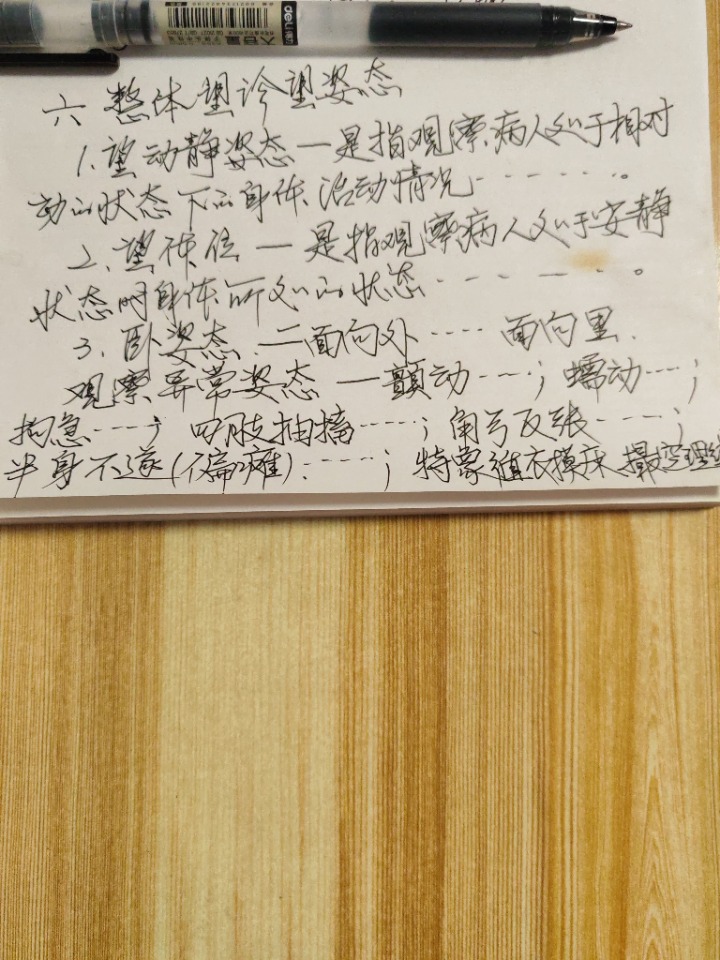 deli 得力
大容量
六 整体望诊望姿态
1. 望动静姿态 — 是指观察病人处于相对
动的状态下的身体活动情况 ------- 。
2. 望体位 — 是指观察病人处于安静
状态时身体所处的状态 ------- 。
3. 卧姿态. — 面向外 ---- 面向里.
观察异常姿态 — 颤动 ---; 蠕动 ---;
拘急 ---; 四肢抽搐 ----; 角弓反张 ----;
半身不遂(偏瘫). ----; 特象循衣摸床 撮空理线